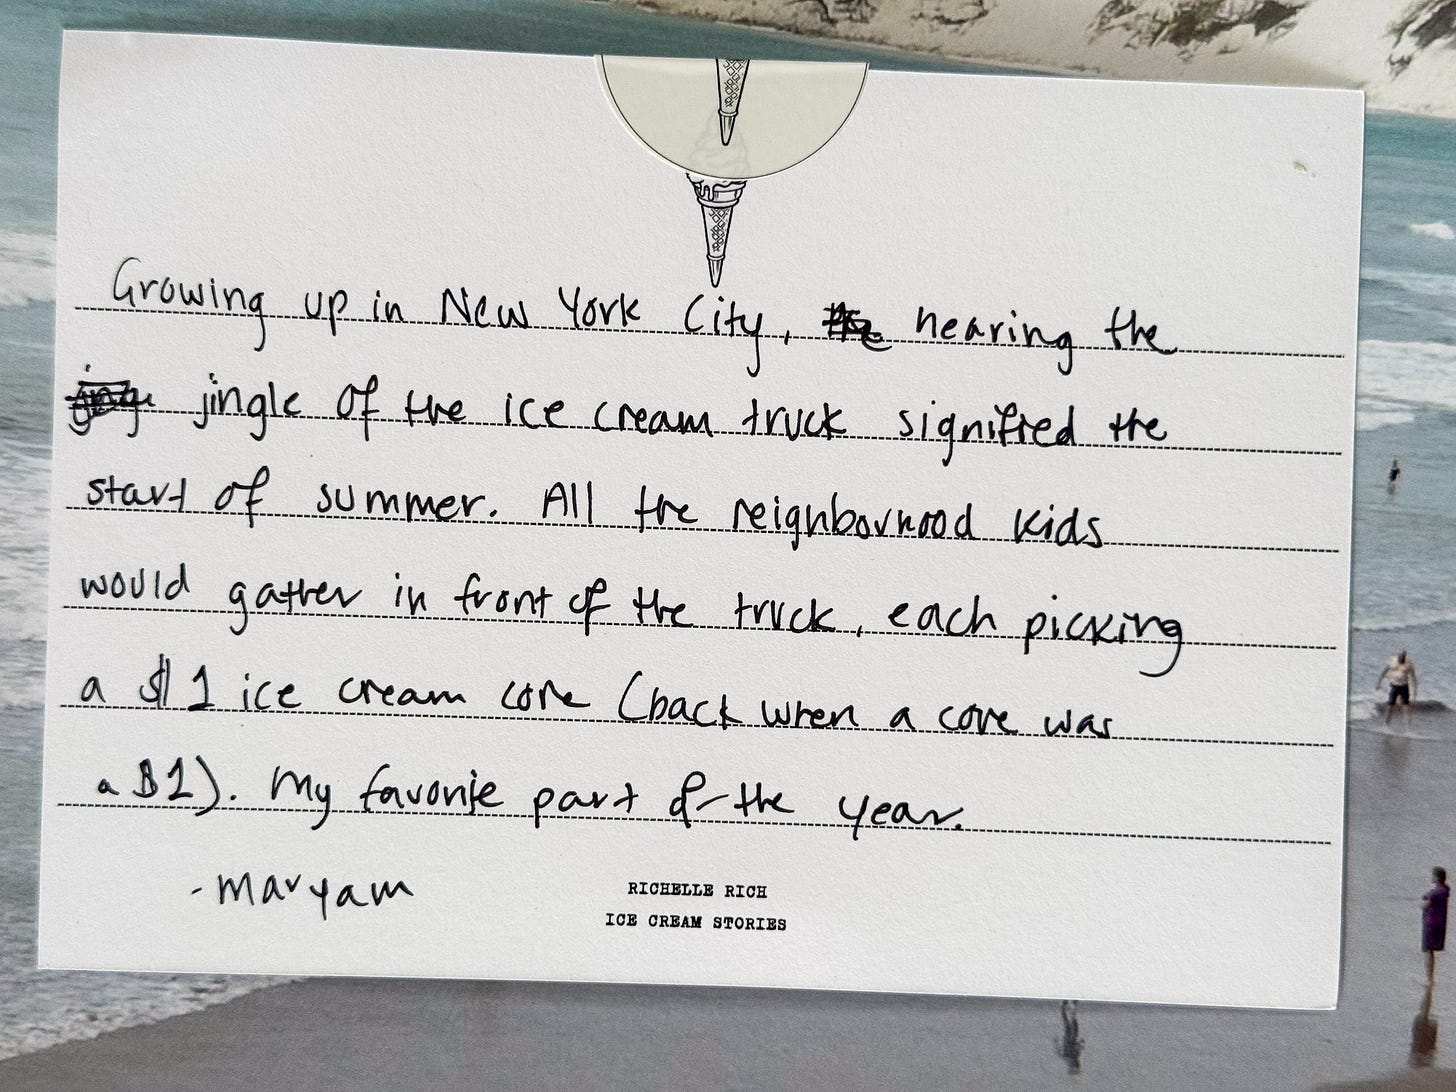 Growing up in New York City, hearing the
jingle of the ice cream truck signified the
start of summer. All the neighborhood kids
would gather in front of the truck, each picking
a $1 ice cream cone (back when a cone was
a $1). My favorite part of the year.
-Maryam
RICHELLE RICH
ICE CREAM STORIES